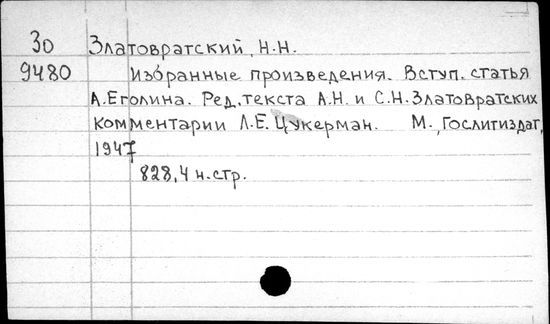 30 Златовратский, Н.Н.
9480 Избранные произведения. Вступ. статья
А.Еголина. Ред. текста А.Н. и С.Н. Златовратских
Комментарии Л.Е. Цукерман. М., Гослитиздат,
1947
828, 4 н.стр.